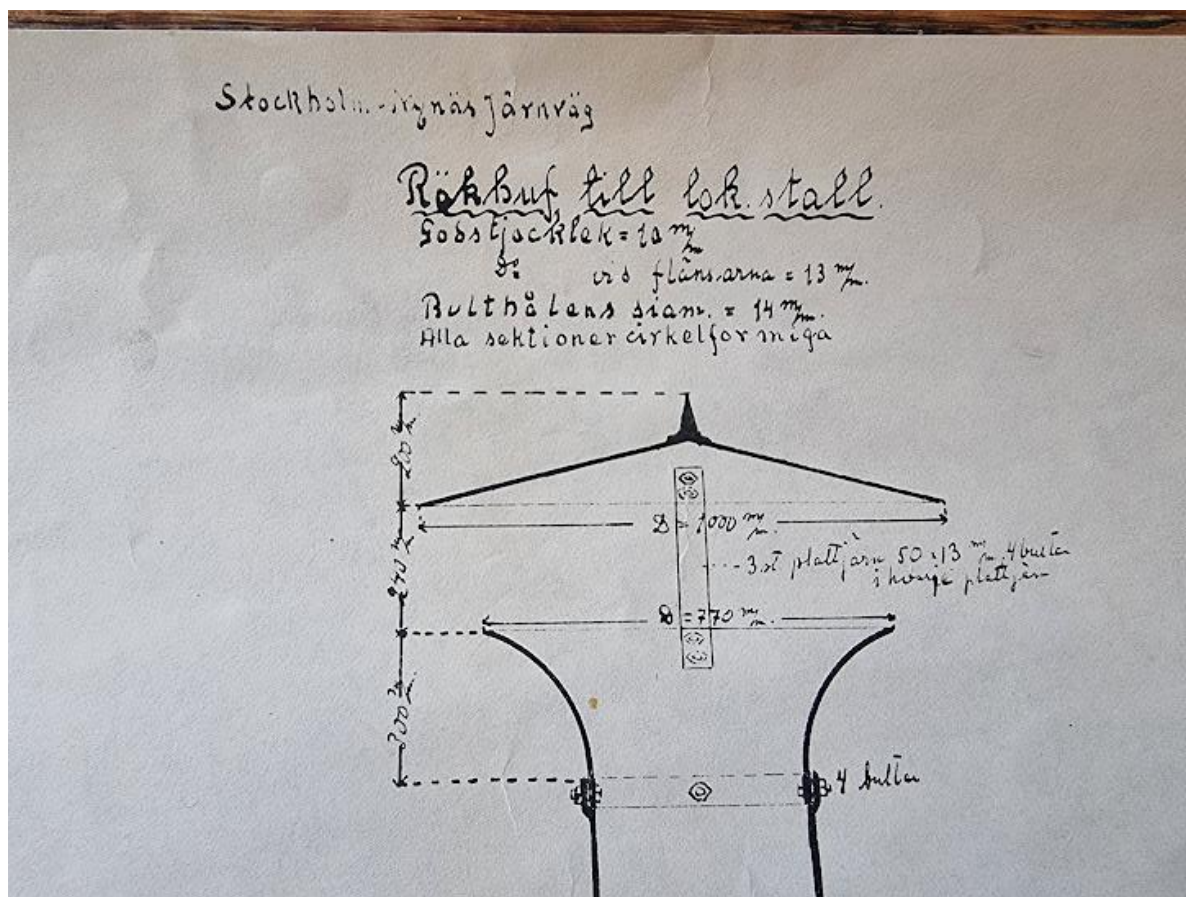 Stockholm-Nynäs Järnväg
Rökhuf till lok.stall.
Godstjocklek = 10 m/m
Do vid flänsarna = 13 m/m.
Bulthålens diam. = 14 m/m.
Alla sektioner cirkelformiga
D = 1000 m/m.
240 m/m
3 st plattjärn 50 · 13 m/m, 4 bultar
i hvarje plattjärn
D = 770 m/m.
300 m/m
4 bultar